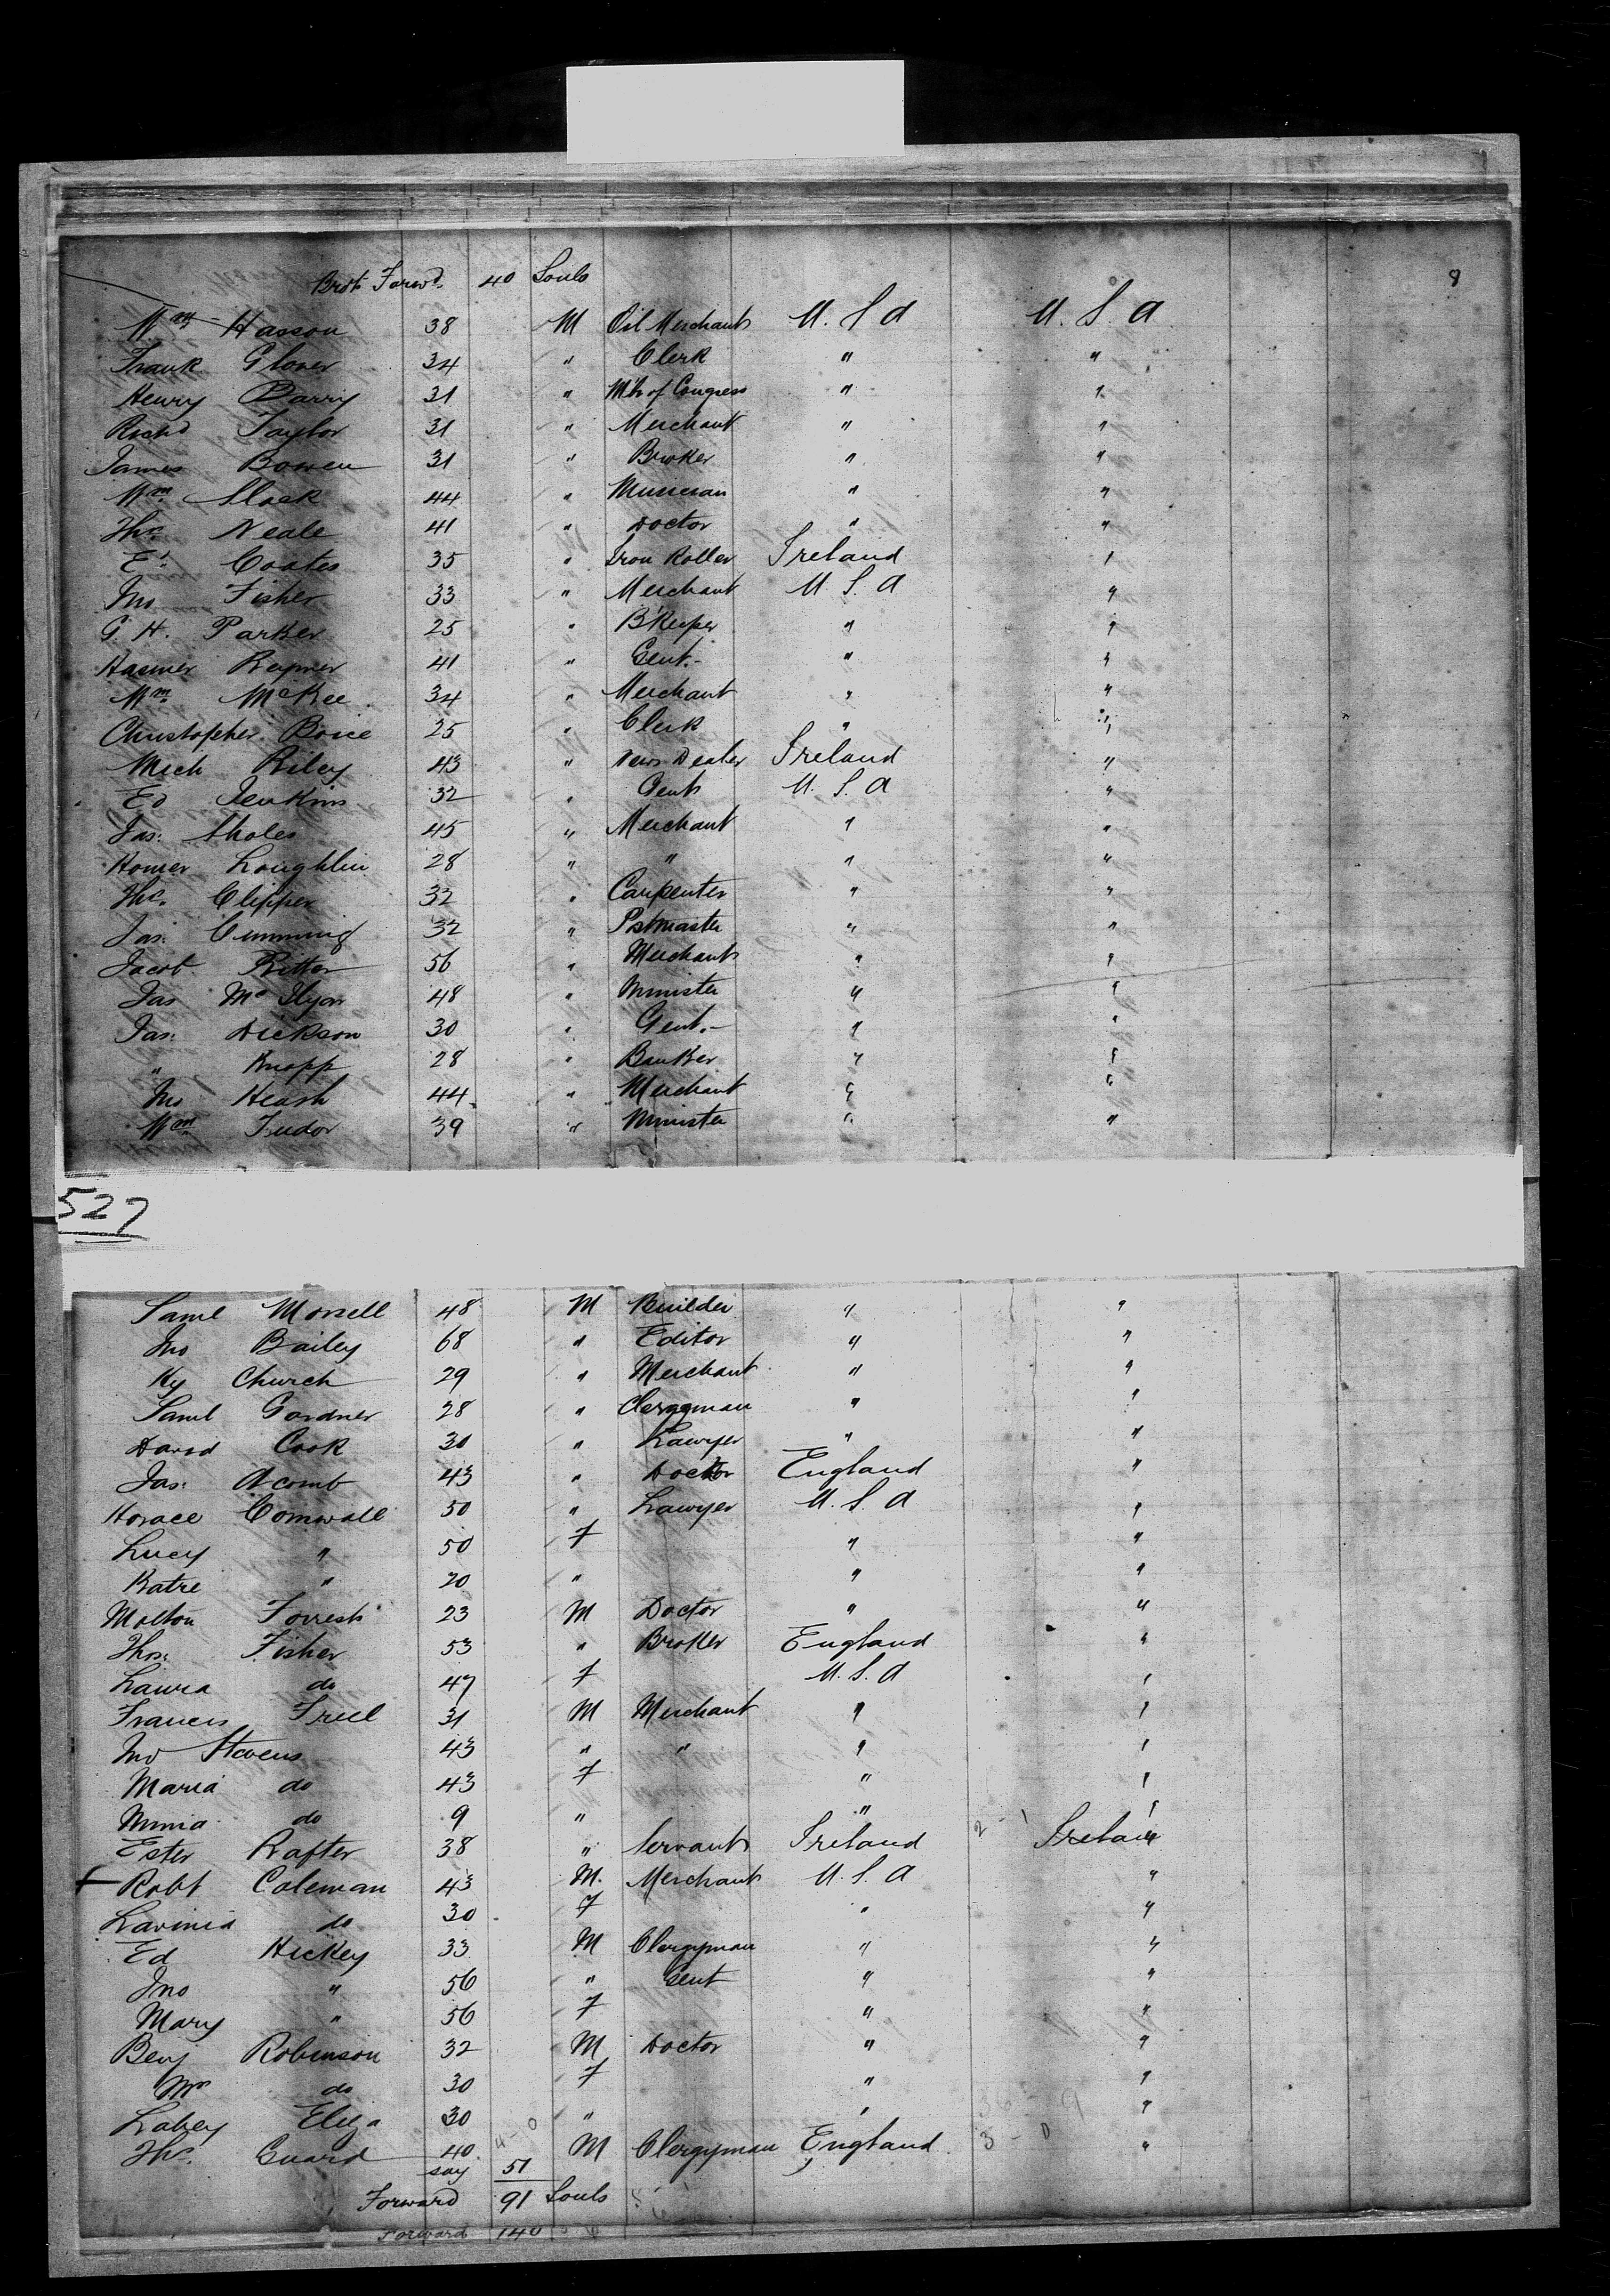 Brot Forwd. 40 Souls
8
Wm Hasson 38 M Oil Merchant U. S. A U. S. A
Frank Glover 34 " Clerk " "
Henry Barry 31 " Mbr of Congress " "
Richd Taylor 31 " Merchant " "
James Bowen 31 " Broker " "
Wm Slack 44 " Musician " "
Ths. Neale 41 " Doctor " "
Ed Coates 35 " Iron Roller Ireland "
Jno Fisher 33 " Merchant U. S. A "
G. H. Parker 25 " B'Keeper " "
Raymer 41 " Gent.- " "
Wm McKee 34 " Merchant " "
Christopher Boice 25 " Clerk " "
Mich Riley 43 " News Dealer Ireland "
Ed Jenkins 32 " Gent U. S. A "
Jas: Sholes 45 " Merchant " "
Homer Loughlin 28 " " " "
Ths. Clipper 32 " Carpenter " "
Jas: Cumming 32 " Pstmaster " "
Jacob Ritter 56 " Merchant " "
Jas Mc Ilyar 48 " Minister " "
Jas: Dickson 30 " Gent.- " "
" Knapp 28 " Banker " "
Jno Heash 44 " Merchant " "
Wm Tudor 39 " Minister " "
527
Saml Morsell 48 M Builder " "
Jno Bailey 68 " Editor " "
Hy Church 29 " Merchant " "
Saml Gardner 28 " Clergyman " "
David Cook 30 " Lawyer " "
Jas: Acomb 43 " Doctor England "
Horace Cornwall 50 " Lawyer U. S. A "
Lucy " 50 F " "
Katie " 20 " " "
Molton Forrest 23 M Doctor " "
Thos: Fisher 53 " Broker England "
Laura do 47 F U. S. A "
Francis Friel 31 M Merchant " "
Jno Stevens 43 " " " "
Maria do 43 F " "
Minia do 9 " " "
Ester Rafter 38 " Servant Ireland Ireland
Robt Coleman 43 M. Merchant U. S. A "
Lavinia do 30 F " "
Ed Hickey 33 M Clergyman " "
Jno " 56 " Gent " "
Mary " 56 F " "
Benj Robinson 32 M Doctor " "
Mrs do 30 F " "
Labey Eliza 30 " " "
Ths. Guard 40 M Clergyman England "
say 51
Forward 91 Souls
Forward 140